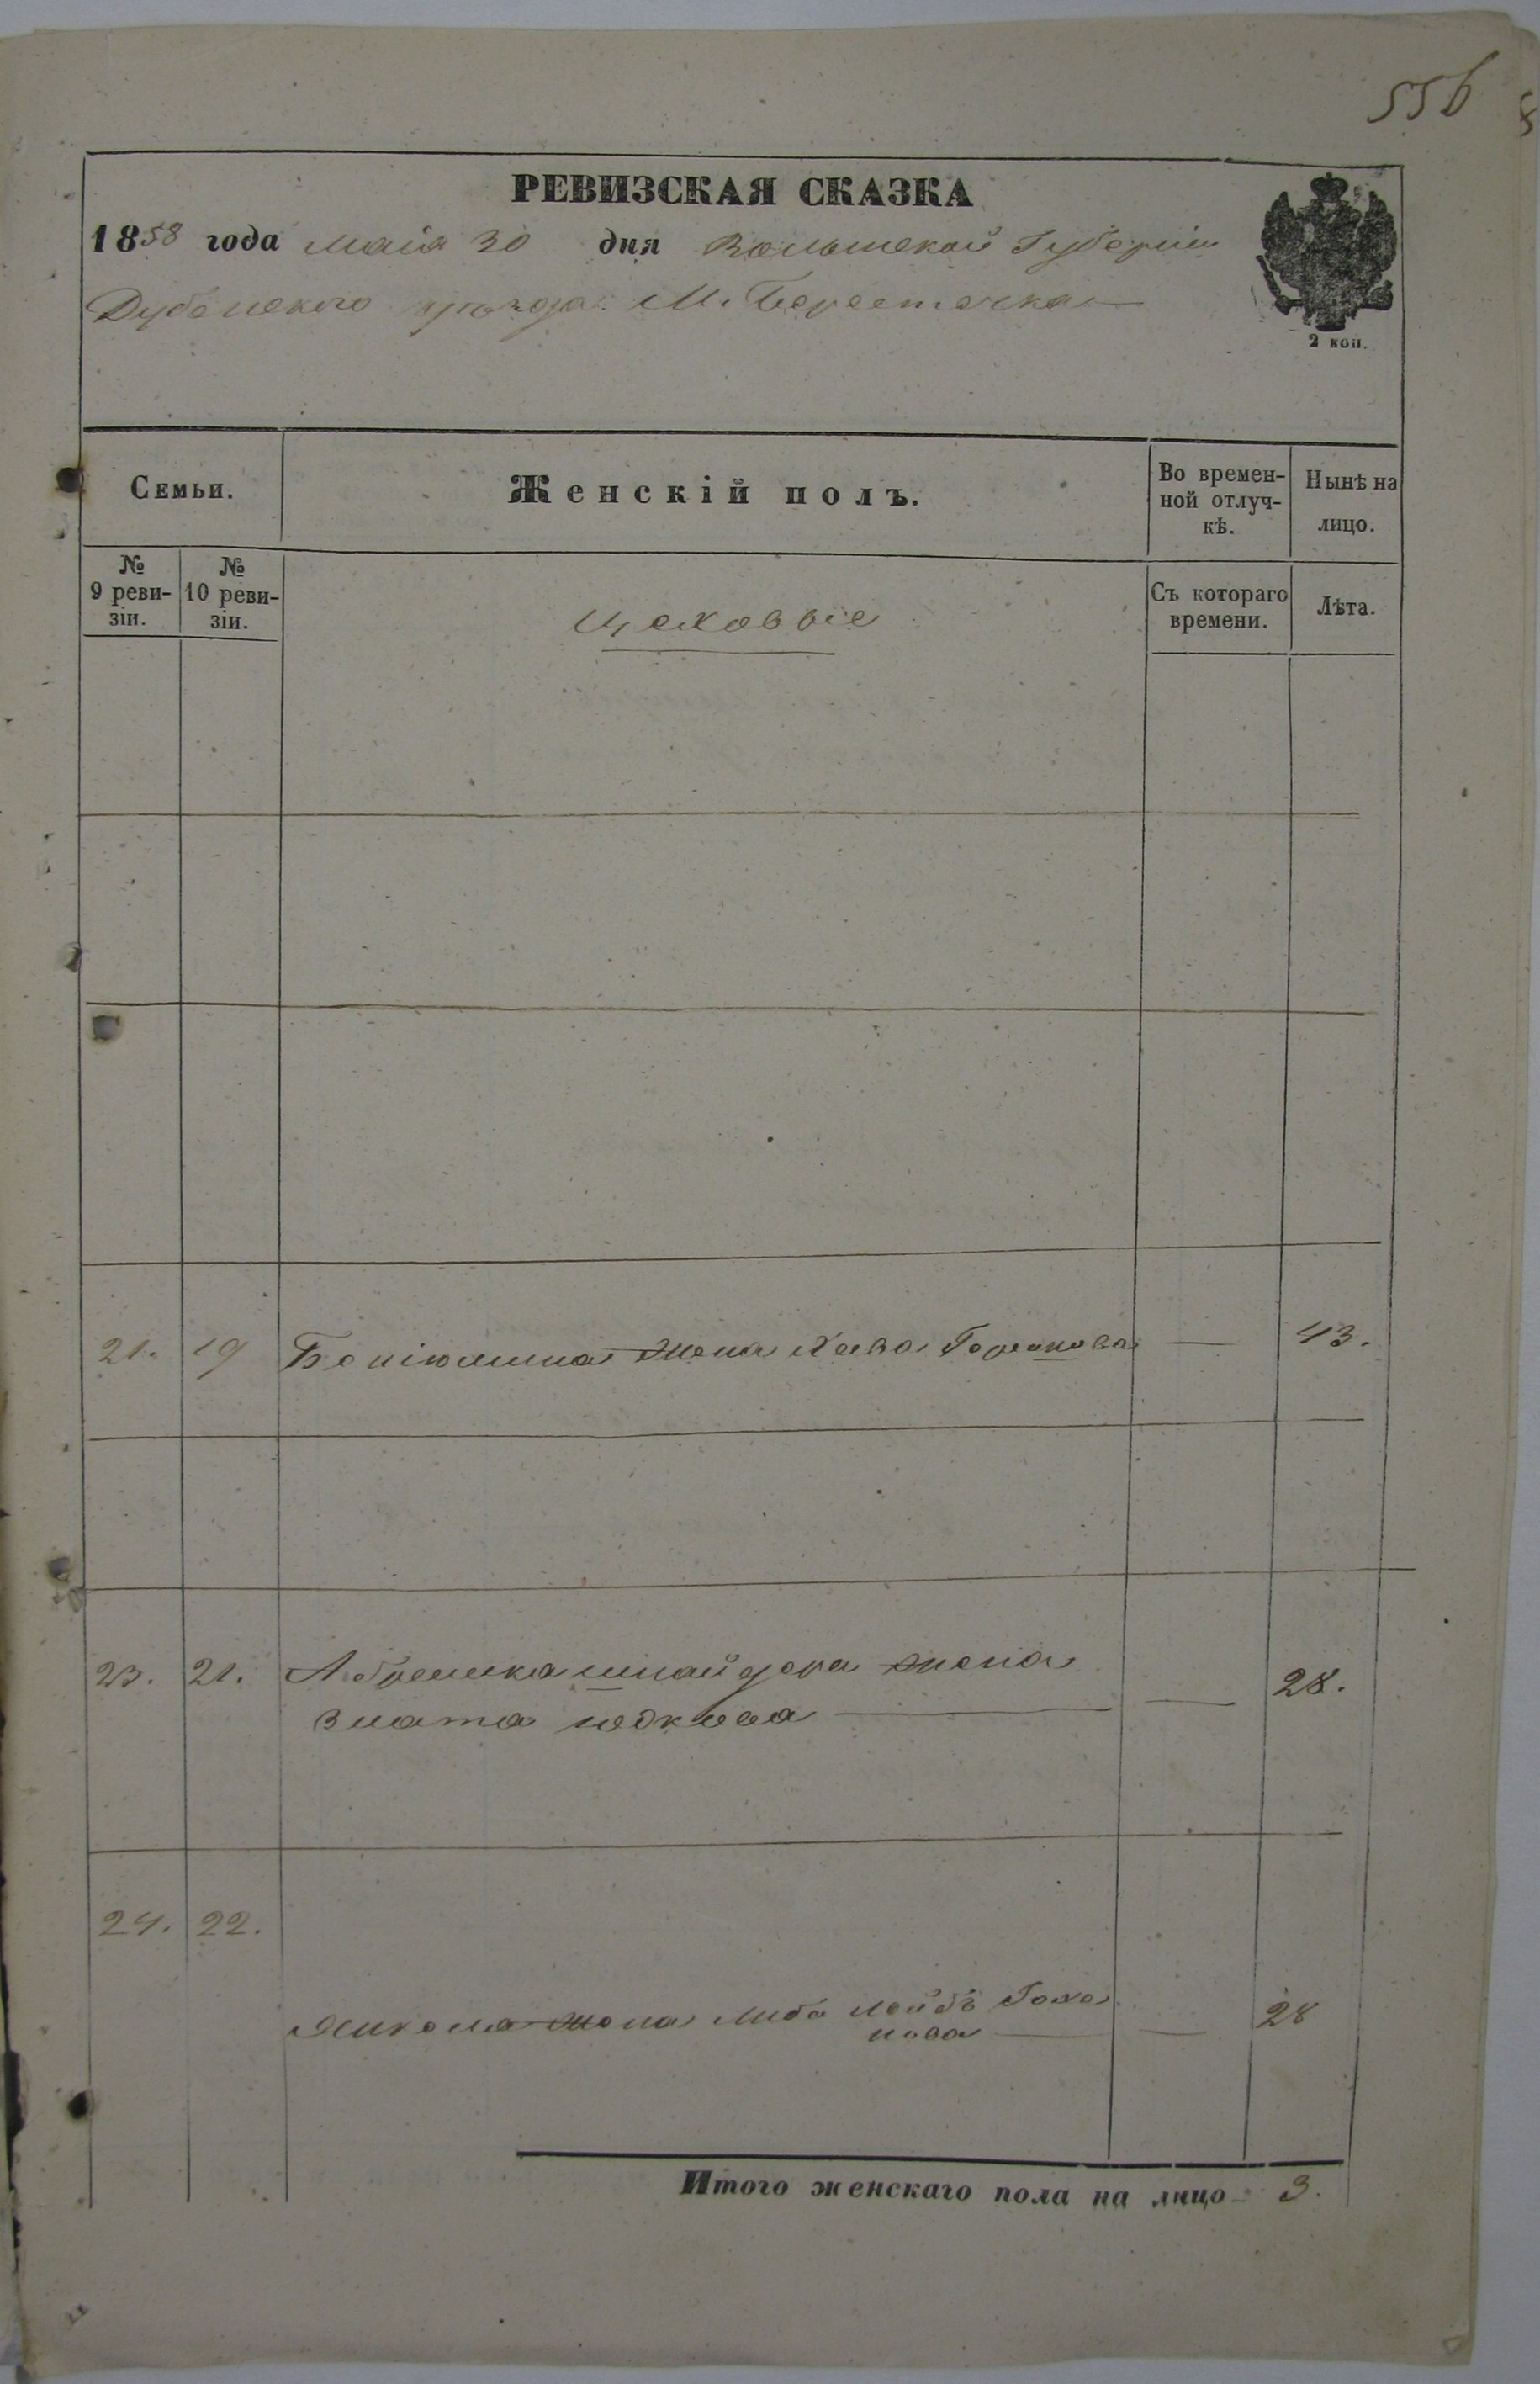 556
РЕВИЗСКАЯ СКАЗКА
1858 года маія 30 дня Волынской Губерніи
Дубенского уѣзда М. Берестечка
2 коп.
Семьи.
Женскій полъ.
Во времен-
ной отлуч-
кѣ.
Нынѣ на
лицо.
№
9 реви-
зіи.
№
10 реви-
зіи.
Цеховые
Съ котораго
времени.
Лѣта.
21. 19 Беніюмина жена Хава — 43.
23. 21. Абрамка шнайдера жена
Злата юдкова — 28.
24. 22.
Янкеля жена Либа Лейбъ
нова — 28
Итого женскаго пола на лицо 3.